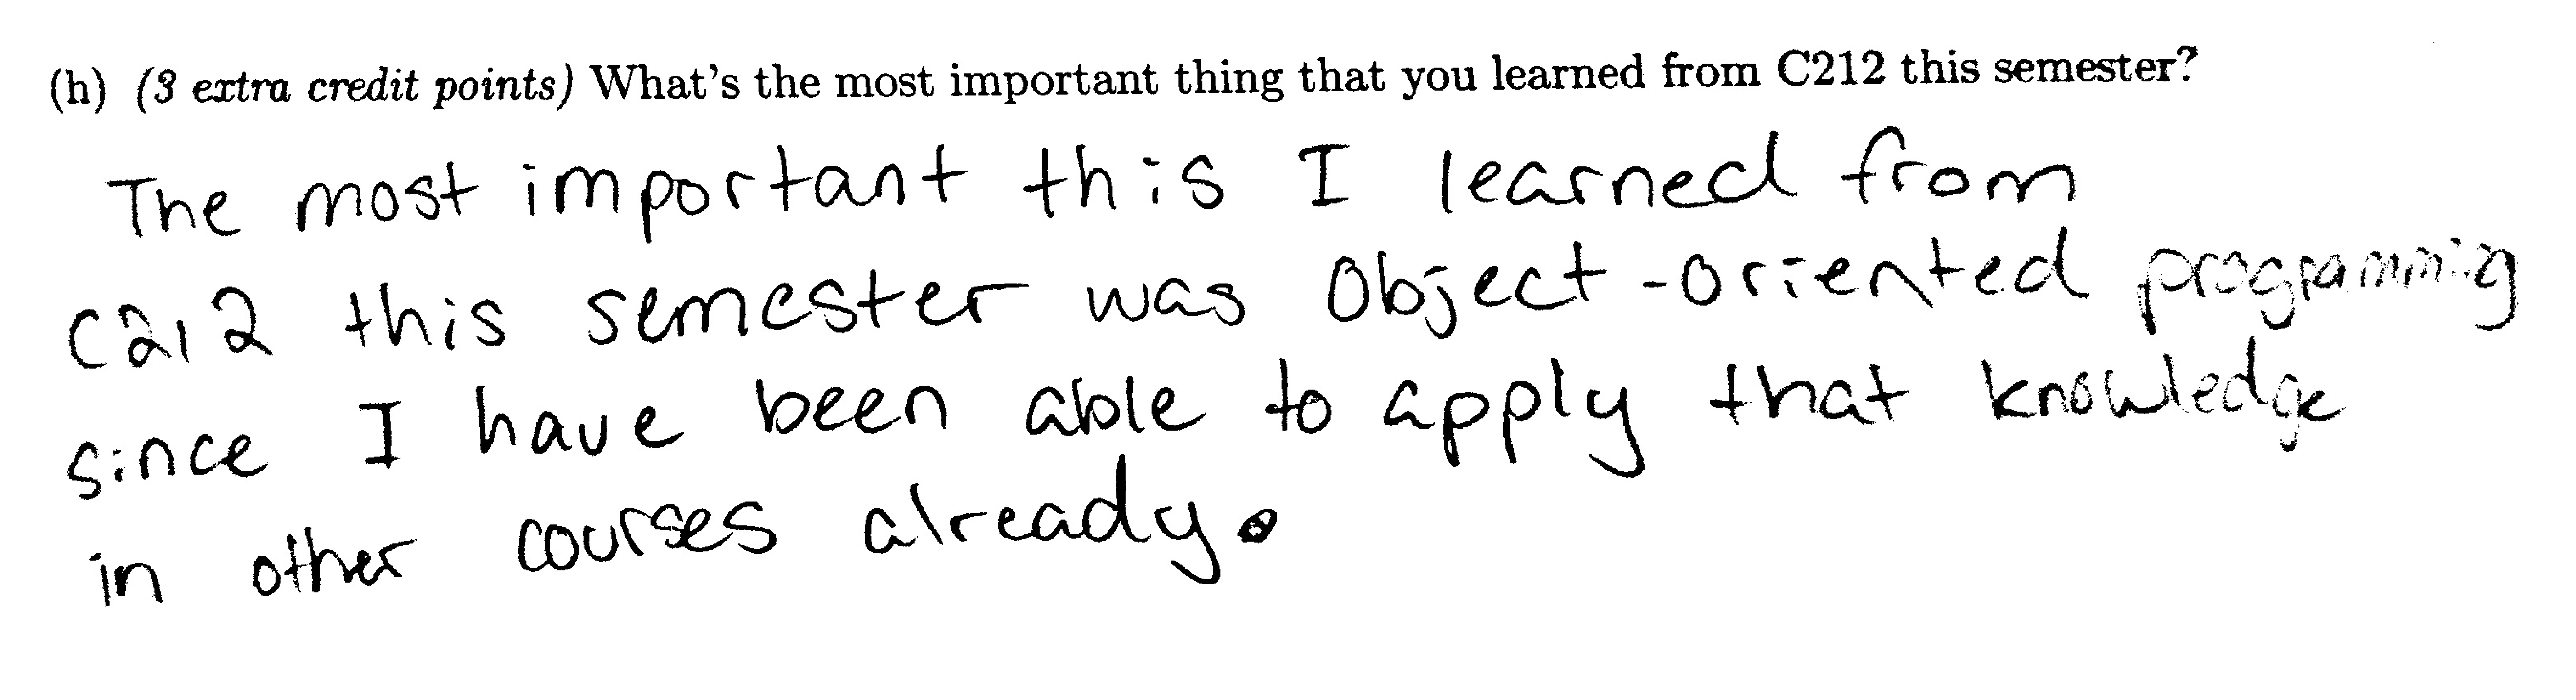 (h) (3 extra credit points) What's the most important thing that you learned from C212 this semester?
The most important this I learned from
C212 this semester was Object-oriented programming
since I have been able to apply that knowledge
in other courses already.